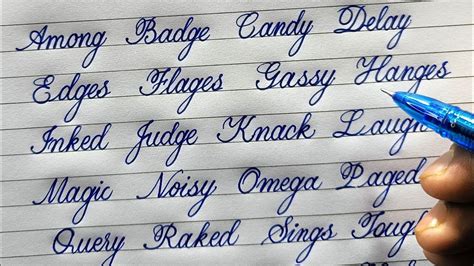 Among Badge Candy Delay
Edges Flages Gassy Hanges
Inked Judge Knack Laugh
Magic Noisy Omega Paged
Query Raked Sings Tough